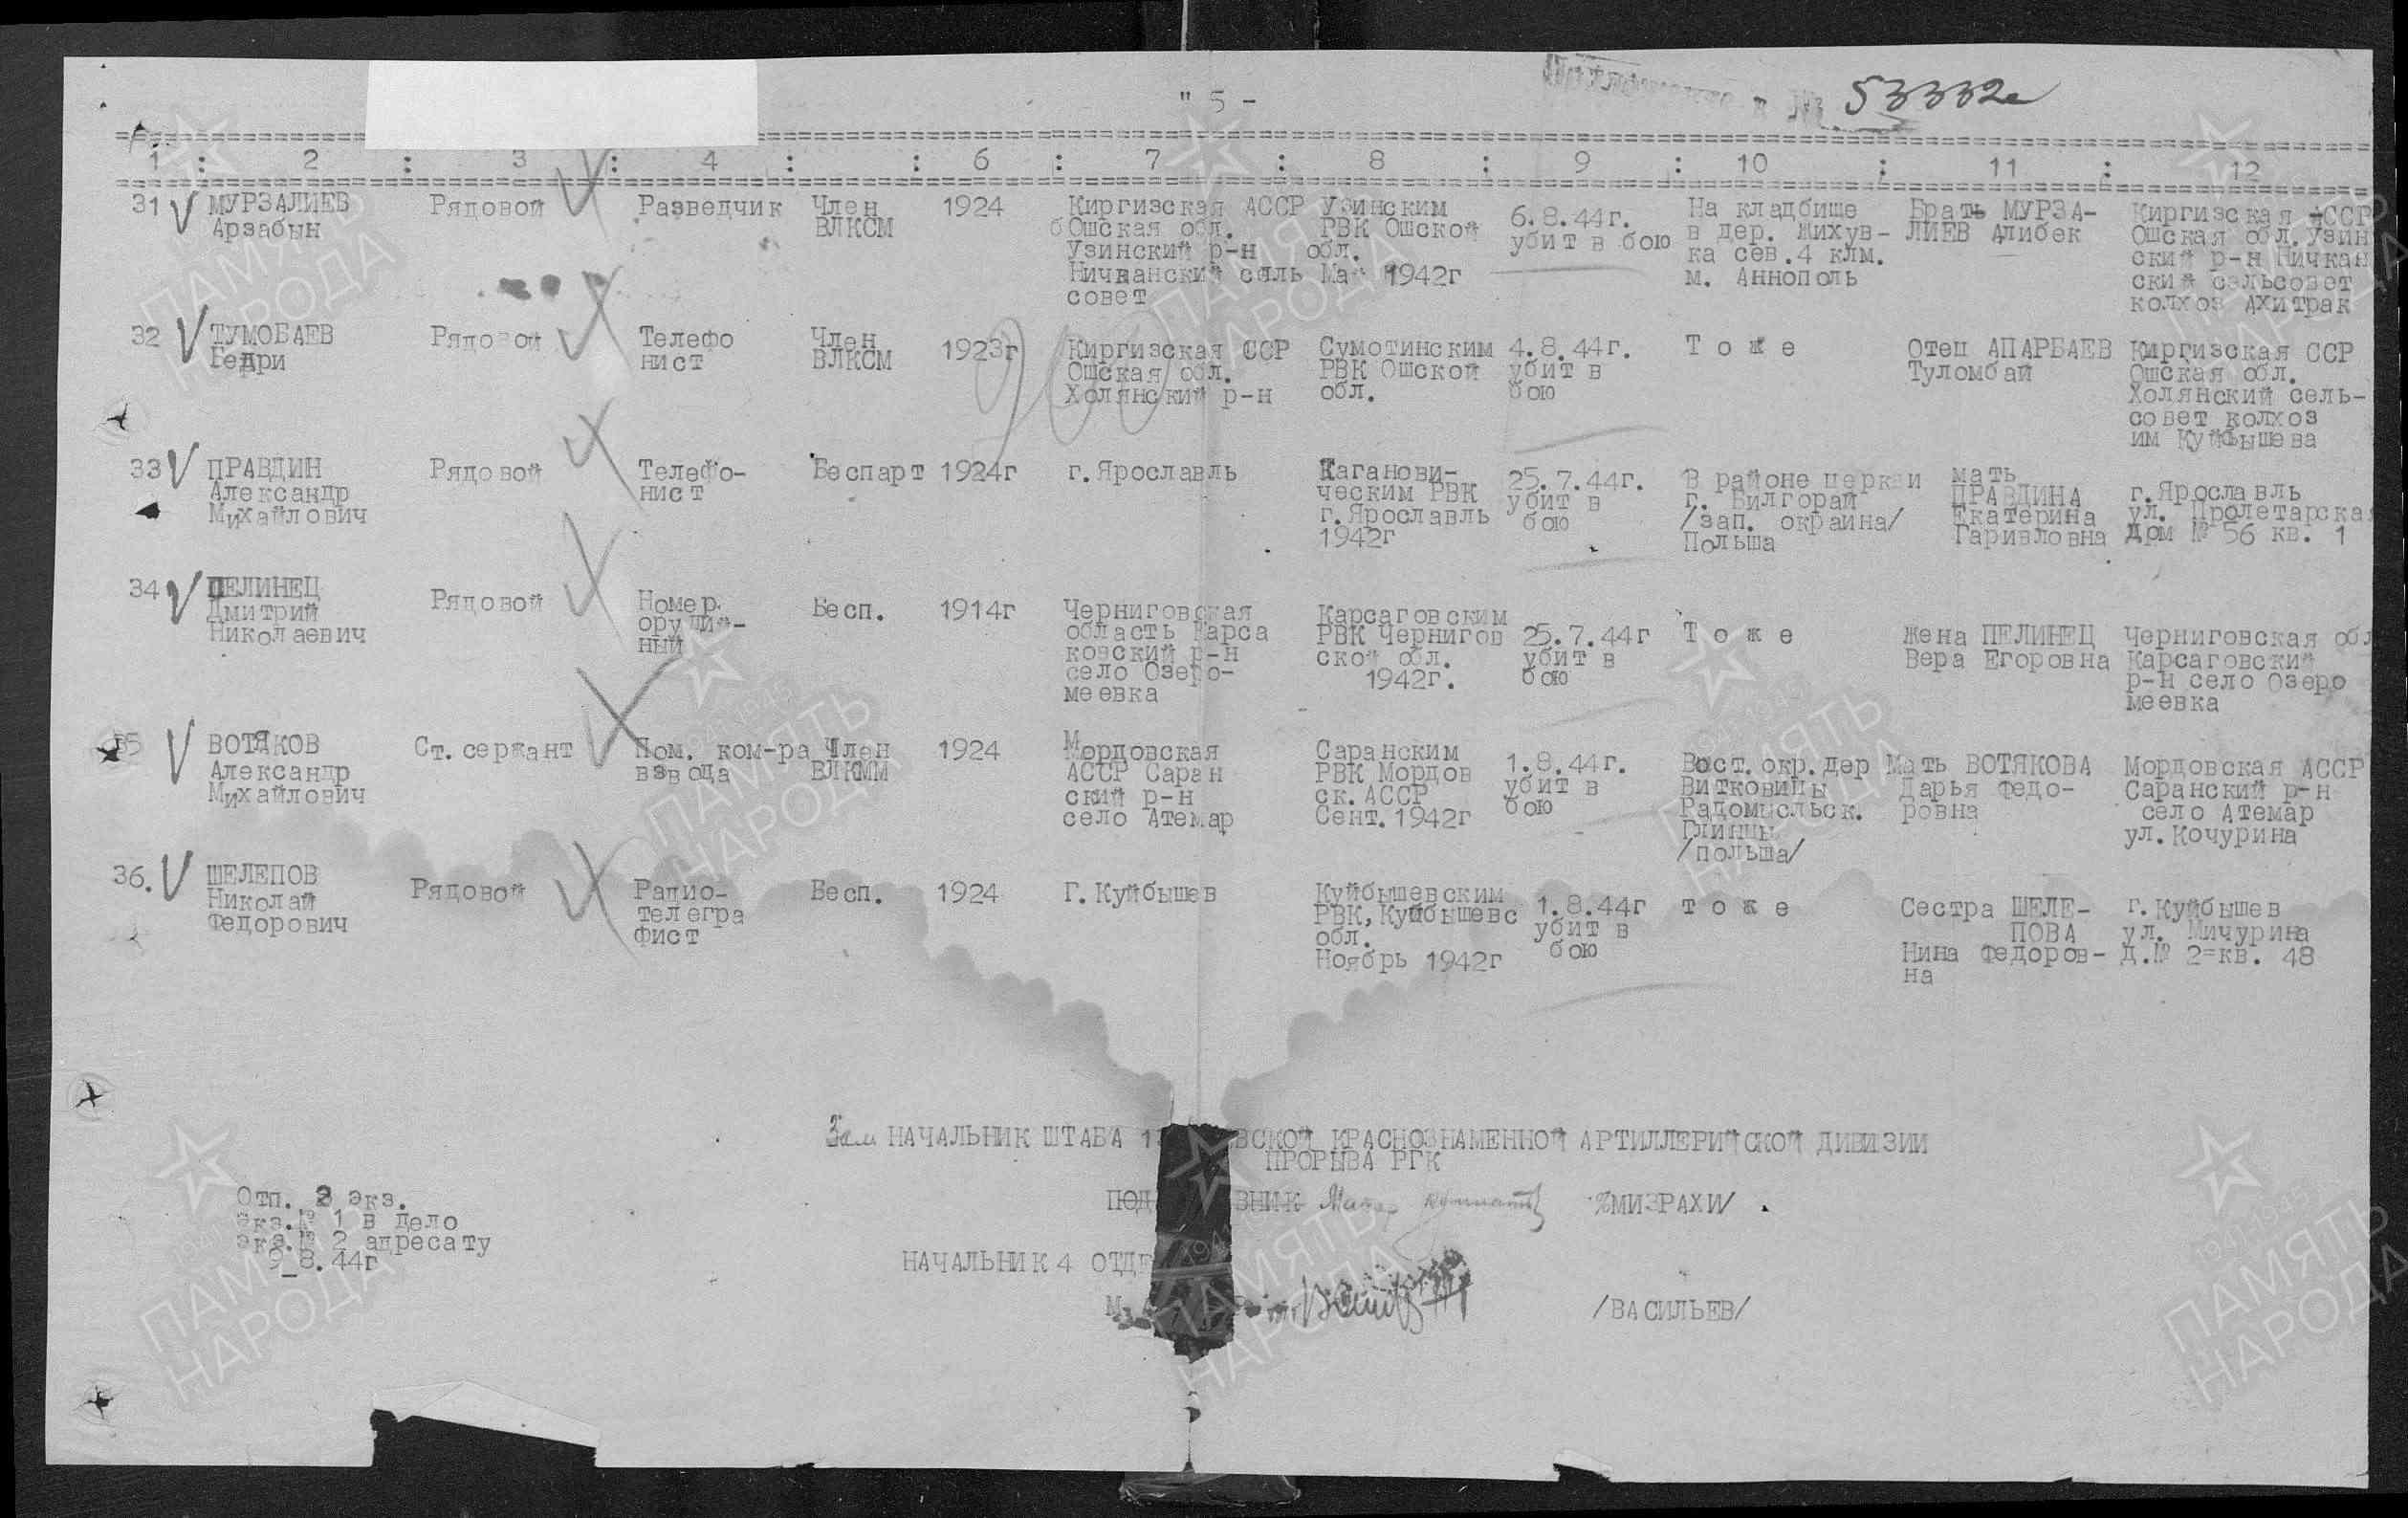 " 5 -
№ 53332с
1 : 2 : 3 : 4 : : 6 : 7 : 8 : 9 : 10 : 11 : 12
31 МУРЗАЛИЕВ Арзабын
Рядовой
Разведчик
Член
ВЛКСМ
1924
Киргизская АССР
Ошская обл.
Узинский р-н
Ничканский сель
совет
Узинским
РВК Ошской
обл.
Май 1942г
6.8.44г.
убит в бою
На кладбище
в дер. Жихув-
ка сев.4 клм.
м. Аннополь
Брать МУРЗА-
ЛИЕВ Алибек
Киргизская АССР
Ошская обл. Узин
ский р-н Ничкан
ский сельсовет
колхоз Ахитрак
32 ТУМОБАЕВ
Бедри
Рядовой
Телефо
нист
Член
ВЛКСМ
1923г
Киргизская ССР
Ошская обл.
Холянский р-н
Сумотинским
РВК Ошской
обл.
4.8.44г.
убит в
бою
Т о ж е
Отец АПАРБАЕВ
Туломбай
Киргизская ССР
Ошская обл.
Холянский сель-
совет колхоз
им Куйбышева
33 ПРАВДИН
Александр
Михайлович
Рядовой
Телефо-
нист
Беспарт
1924г
г.Ярославль
Каганови-
ческим РВК
г.Ярославль
1942г
25.7.44г.
убит в
бою
В районе церкви
г. Билгорай
/зап. окраина/
Польша
мать
ПРАВДИНА
Екатерина
Гавриловна
г.Ярославль
ул. Пролетарская
Дом № 56 кв. 1
34 ПЕЛИНЕЦ
Дмитрий
Николаевич
Рядовой
Номер
орудий-
ный
Бесп.
1914г
Черниговская
область Карса
ковский р-н
село Озеро-
меевка
Карсаговским
РВК Чернигов
ской обл.
1942г.
25.7.44г
убит в
бою
Т о ж е
Жена ПЕЛИНЕЦ
Вера Егоровна
Черниговская обл
Карсаговский
р-н село Озеро
меевка
35 ВОТЯКОВ
Александр
Михайлович
Ст.сержант
Пом. ком-ра
взвода
Член
ВЛКММ
1924
Мордовская
АССР Саран
ский р-н
село Атемар
Саранским
РВК Мордов
ск.АССР
Сент.1942г
1.8.44г.
убит в
бою
Вост.окр.дер
Витковицы
Радомысльск.
Глинцы
/польша/
Мать ВОТЯКОВА
Дарья Федо-
ровна
Мордовская АССР
Саранский р-н
село Атемар
ул.Кочурина
36. ШЕЛЕПОВ
Николай
Федорович
Рядовой
Радио-
телегра
фист
Бесп.
1924
Г.Куйбышев
Куйбышевским
РВК,Куйбышевс
обл.
Ноябрь 1942г
1.8.44г
убит в
бою
т о ж е
Сестра ШЕЛЕ-
ПОВА
Нина Федоров-
на
г.Куйбышев
ул. Мичурина
д.№ 2=кв. 48
Зам НАЧАЛЬНИК ШТАБА 1 ВСКОЙ КРАСНОЗНАМЕННОЙ АРТИЛЛЕРИЙСКОЙ ДИВИЗИИ
ПРОРЫВА РГК
ПОД ВНИК /МИЗРАХИ/
НАЧАЛЬНИК 4 ОТД
/ВАСИЛЬЕВ/
Отп. 2 экз.
экз.№ 1 в дело
экз.№ 2 адресату
9_8.44г
ПАМЯТЬ НАРОДА